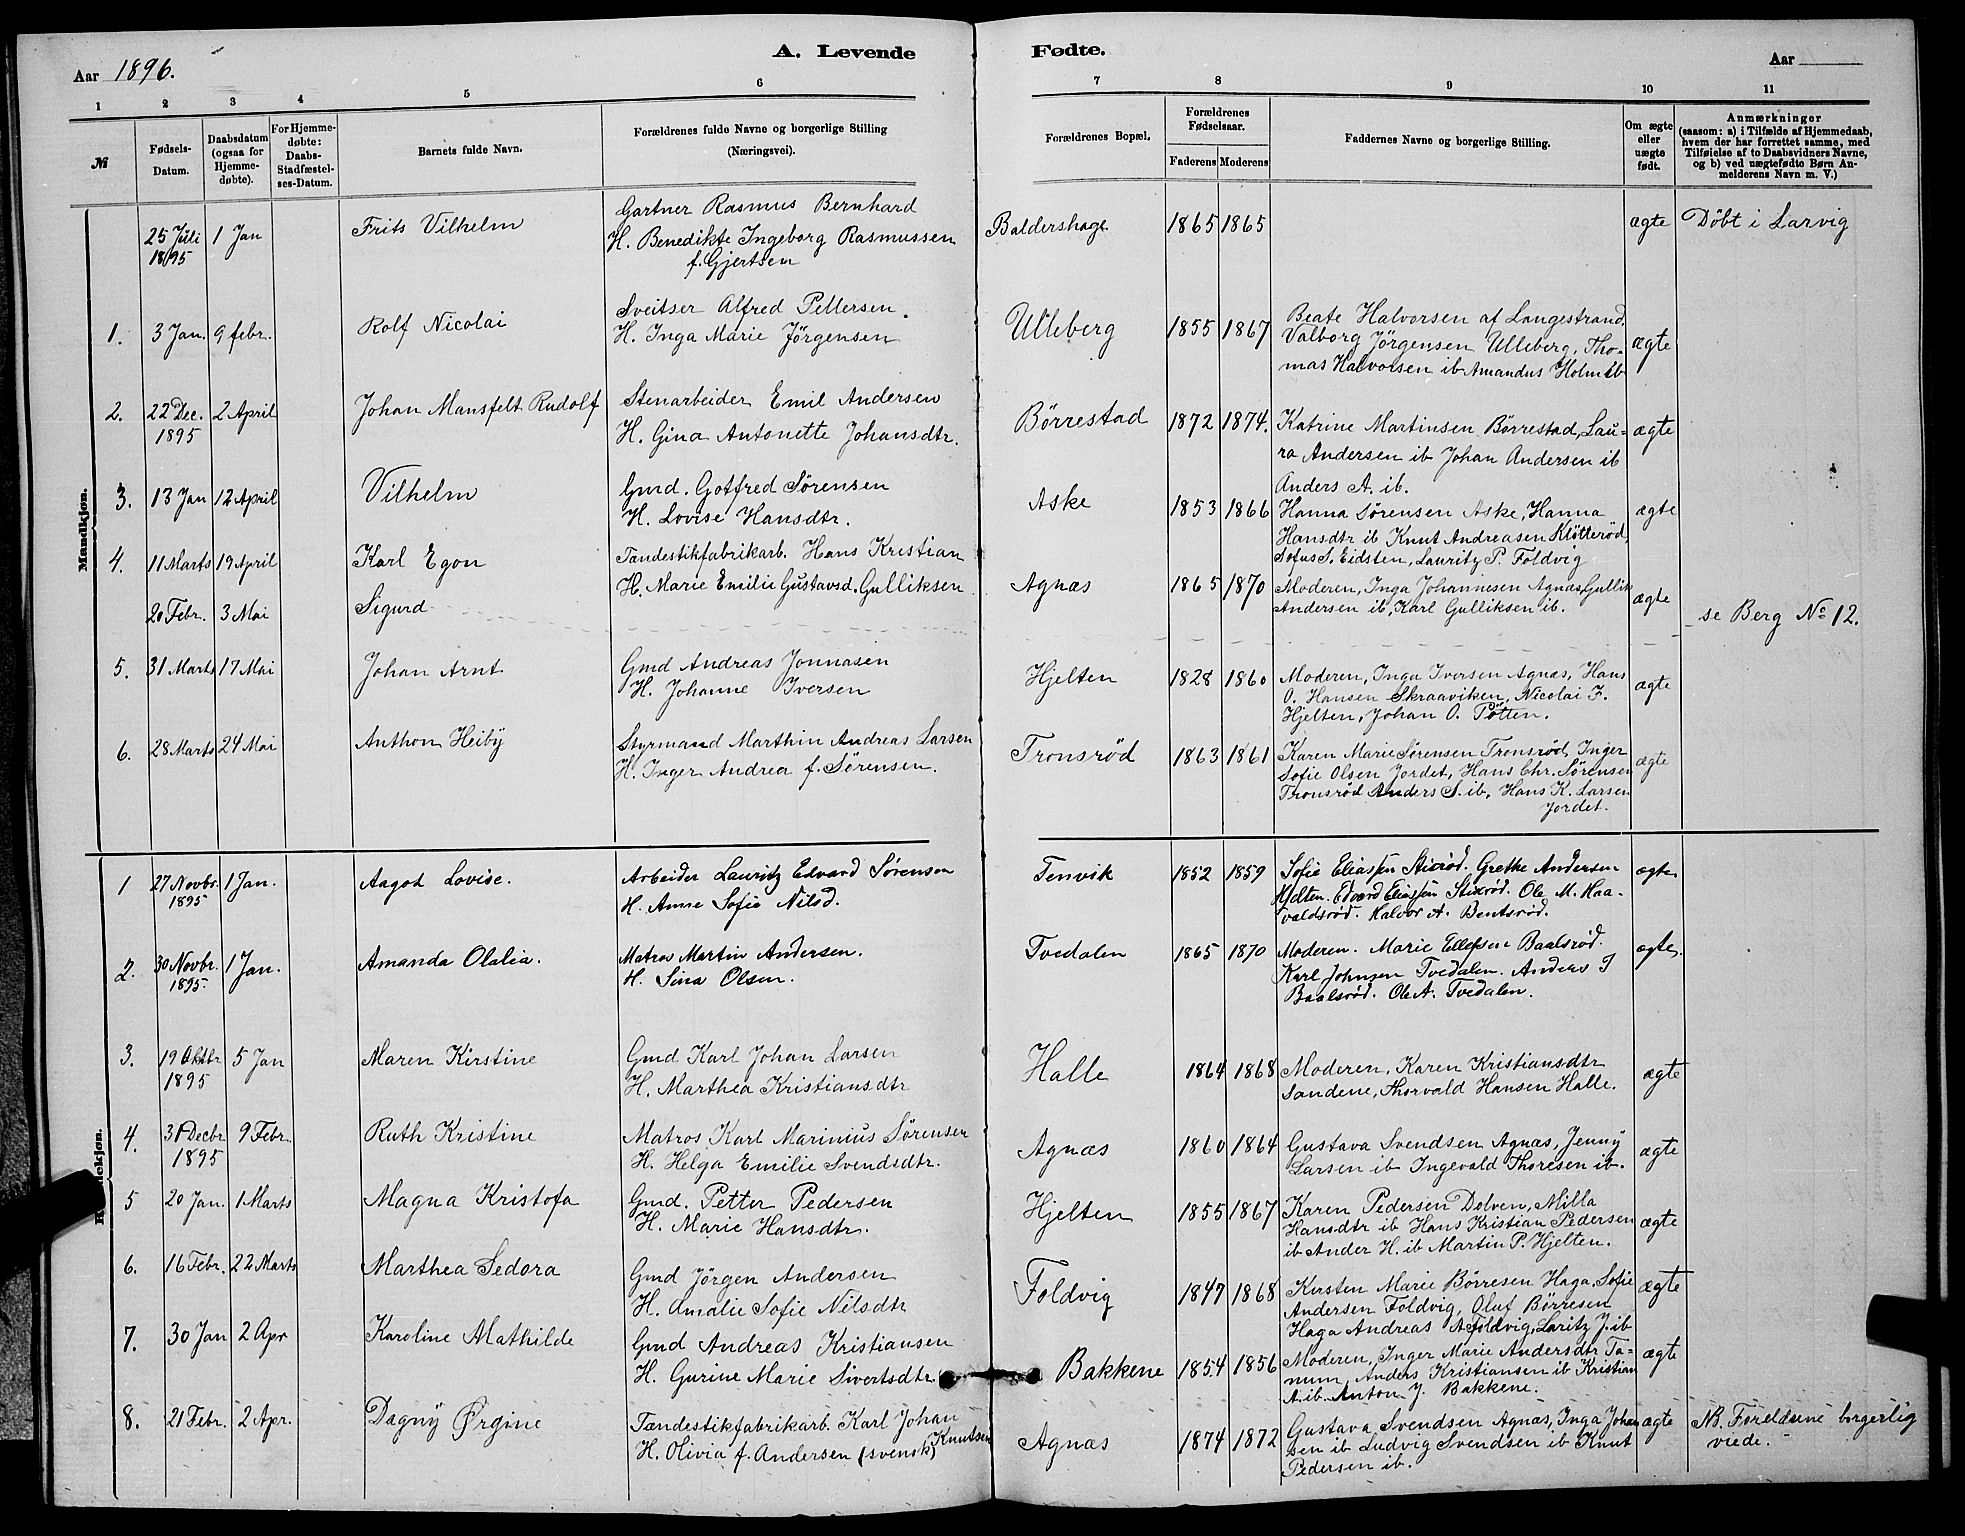 Aar 1896.
A. Levende
Fødte.
Aar
1 2 3 4 5 6 7 8 9 10 11
№
Fødsels-
Datum.
Daabsdatum
(ogsaa for
Hjemme-
døbte).
For Hjemme-
døbte:
Daabs-
Stadfæstel-
ses-Datum.
Barnets fulde Navn.
Forældrenes fulde Navne og borgerlige Stilling
(Næringsvei).
Forældrenes Bopæl.
Forældrenes
Fødselsaar.
Faderens Moderens
Faddernes Navne og borgerlige Stilling.
Om ægte
eller
uægte
født.
Anmærkninger
(saasom: a) i Tilfælde af Hjemmedaab,
hvem der har forrettet samme, med
Tilføielse af to Daabsvidners Navne,
og b) ved uægtefødte Børn An-
melderens Navn m. V.)
Mandkjøn.
25 Juli 1 Jan Frits Vilhelm
1895
Gartner Rasmus Bernhard
H. Benedikte Ingeborg Rasmussen
f. Gjertsen
Baldershage 1865 1865 ægte Döbt i Larvig
1. 3 Jan. 9 febr. Rolf Nicolai
Sveitser Alfred Pettersen.
H. Inga Marie Jörgensen
Ulleberg 1855 1867
Beate Halvorsen af Langestrand,
Valborg Jörgensen Ulleberg, Tho-
mas Halvorsen ib Amandus Holm ib
ægte
2. 22 Dec. 2 April Johan Mansfelt Rudolf
1895
Stenarbeider Emil Andersen
H. Gina Antonette Johansdtr.
Börrestad 1872 1874.
Katrine Martinsen Börrestad, Lau-
ra Andersen ib Johan Andersen ib
Anders A. ib.
ægte
3. 13 Jan 12 April Vilhelm
Gmd. Gotfred Sörensen
H. Lovise Hansdtr.
Aske 1853 1866
Hanna Sörensen Aske, Hanna
Hansdtr ib Knut Andreasen Klötteröd,
Sofus S. Eidsten, Lauritz P. Foldvig
ægte
4. 11 Marts 19 April Karl Egon
Tændestikfabrikarb. Hans Kristian
H. Marie Emilie Gustavsd. Gulliksen
Agnæs 1865 1870
Moderen, Inga Johannesen Agnæs, Gullik
Andersen ib, Karl Gulliksen ib.
ægte
20 Febr. 3 Mai Sigurd
se Berg No 12.
5. 31 Marts 17 Mai Johan Arnt
Gmd Andreas Jonnasen
H. Johanne Iversen
Hjelten 1828 1860
Moderen, Inga Iversen Agnæs, Hans
O. Hansen Skraaviken, Nicolai F.
Hjelten, Johan O. Pötten.
ægte
6. 28 Marts 24 Mai Anthon Heiby
Styrmand Marthin Andreas Larsen
H. Inger Andrea f. Sørensen.
Tronsröd 1863 1861
Karen Marie Sörensen Tronsröd, Inger
Sofie Olsen Jordet, Hans Chr. Sörensen
Tronsröd Anders S. ib, Hans K. Larsen
Jordet.
ægte
Kvindekjøn.
1 27 Novbr. 1 Jan. Aagot Lovise.
1895
Arbeider Lauritz Edvard Sørensen
H. Anne Sofie Nilsd.
Tenvik 1852 1859
Sofie Eliassen Stixrød. Grethe Andersen
Hjelten. Edvard Eliassen Stixrød. Ole M. Haa-
valdsrød. Halvor A. Bentsrød.
ægte
2. 30 Novbr. 1 Jan. Amanda Olalia.
1895.
Matros Martin Andersen.
H. Sina Olsen.
Tvedalen 1865 1870
Moderen. Marie Ellefsen Baalsrød.
Karl Johnsen Tvedalen. Anders J
Baalsrød. Ole A. Tvedalen.
ægte.
3. 19 Oktbr 5 Jan Maren Kirstine
1895
Gmd Karl Johan Larsen
H. Marthea Kristiansdtr
Halle 1864 1868
Moderen, Karen Kristiansdtr
Sandene, Thorvald Hansen Halle.
ægte
4. 31 Decbr 9 Febr. Ruth Kristine
1895
Matros Karl Marinius Sörensen
H. Helga Emilie Svendsdtr.
Agnæs 1860 1864
Gustava Svendsen Agnæs, Jenny
Larsen ib Ingevald Thoresen ib.
ægte
5 20 Jan. 1 Marts Magna Kristofa
Gmd. Petter Pedersen
H. Marie Hansdtr.
Hjelten 1855 1867
Karen Pedersen Dolven, Milla
Hansdtr ib Hans Kristian Pedersen
ib Ander H. ib Martin P. Hjelten.
ægte
6. 16 Febr. 22 Marts Marthea Sedora
Gmd Jörgen Andersen
H. Amalie Sofie Nilsdtr
Foldvig 1847 1868
Kirsten Marie Börresen Haga, Sofie
Andersen Foldvig, Oluf Börresen
Haga Andreas A Foldvig, Laritz J. ib
ægte
7. 30 Jan 2 Apr Karoline Mathilde
Gmd Andreas Kristiansen
H. Gurine Marie Sivertsdtr
Bakkene 1854 1856
Moderen, Inger Marie Andersdtr Ta-
num, Anders Kristiansen ib Kristian
A. ib. Anton J. Bakkene.
ægte
8. 21 Febr. 2 Apr. Dagny Ørgine
Tændestikfabrikarb. Karl Johan
Knutsen
H. Olivia f. Andersen (svensk)
Agnæs 1874 1872
Gustava Svendsen Agnæs, Inga Johan
sen ib Ludvig Svendsen ib Knut
Pedersen ib.
ægte
NB. Foreldrene borgerlig
viede.